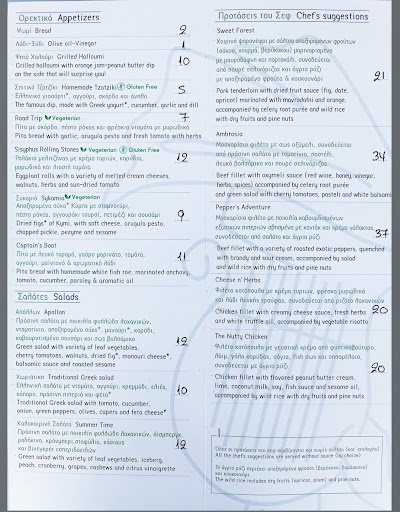 Ορεκτικά Appetizers
Ψωμί Bread 2
Λάδι-Ξύδι Olive oil-Vinegar 1
Ψητό Χαλούμι Grilled Halloumi 10
Grilled halloumi with orange jam-peanut butter dip
on the side that will surprise you!
Σπιτικό Τζατζίκι Homemade Tzatziki Gluten Free 5
Ελληνικό γιαούρτι*, αγγούρι, σκόρδο και άνηθο
The famous dip, made with Greek yogurt*, cucumber, garlic and dill
Road Trip Vegeterian 7
Πίτα με σκόρδο, πέστο ρόκας και φρέσκια ντομάτα με μυρωδικά
Pita bread with garlic, arugula pesto and fresh tomato with herbs
Sisyphus Rolling Stones Vegeterian Gluten Free 12
Ρολάκια μελιτζάνας με κρέμα τυριών, καρύδια,
μυρωδικά και λιαστή τομάτα
Eggplant rolls with a variety of melted cream cheeses,
walnuts, herbs and sun-dried tomato
Συκαμιά Sykamia Vegeterian 9
Αποξηραμένα σύκα* Κύμης με σταμναγκάθι,
πέστο ρόκας, αγγουράκι τουρσί, πετιμέζι και σουσάμι
Dried figs* of Kymi, with soft cheese, arugula pesto,
chopped pickle, pezyme and sesame
Captain's Boat 11
Πίτα με λευκό ταραμά, γαύρο μαρινάτο, τομάτα,
αγγούρι, μαϊντανό & αρωματικό λάδι
Pita bread with homemade white fish roe, marinated anchovy,
tomato, cucumber, parsley & aromatic oil
Σαλάτες Salads
Απόλλων Apollon 12
Πράσινη σαλάτα με ποικιλία φυλλώδη λαχανικών,
ντοματίνια, αποξηραμένα σύκα*, μανούρι*, καρύδι,
καβουρντισμένο σουσάμι και σως βαλσάμικο
Green salad with variety of leaf vegetables,
cherry tomatoes, walnuts, dried figs*, manouri cheese*,
balsamic sauce and roasted sesame
Χωριάτικη Traditional Greek salad 10
Ελληνική σαλάτα με ντομάτα, αγγούρι, κρεμμύδι, ελιές,
κάπαρη, πράσινη πιπεριά και φέτα*
Traditional Greek salad with tomato, cucumber,
onion, green peppers, olives, capers and feta cheese*
Καλοκαιρινή Σαλάτα Summer Time 12
Πράσινη σαλάτα με ποικιλία φυλλώδη λαχανικών, άισμπεργκ,
ροδάκινο, κράνμπερι, σταφύλια, κάσιους
και βινεγκρέτ εσπεριδοειδών
Green salad with variety of leaf vegetables, iceberg,
peach, cranberry, grapes, cashews and citrus vinaigrette
Προτάσεις του Σεφ Chef's suggestions
Sweet Forest
Χοιρινό ψαρονέφρι με σάλτσα αποξηραμένων φρούτων
(σύκου, κουρμά, βερύκοκου) μαριναρισμένο
με μαυροδάφνη και πορτοκάλι, συνοδεύεται
από πουρέ σελινόριζας και άγριο ρύζι
με αποξηραμένα φρούτα & κουκουνάρι 21
Pork tenderloin with dried fruit sauce (fig, date,
apricot) marinated with mavrodafni and orange,
accompanied by celery root purée and wild rice
with dry fruits and pine nuts
Ambrosia
Μοσχαρίσιο φιλέτο με σως οξύμελι, συνοδεύεται
από πράσινη σαλάτα με τοματίνια, παστέλι, 34
λευκό βαλσάμικο και πουρέ σελινόριζας
Beef fillet with oxymeli sauce (red wine, honey, vinegar,
herbs, spices) accompanied by celery root purée
and green salad with cherry tomatoes, pasteli and white balsamic
Pepper's Adventure
Μοσχαρίσιο φιλέτο με ποικιλία καβουρδισμένων
εξωτικών πιπεριών σβησμένο με κονιάκ και κρέμα γάλακτος,
συνοδεύεται από σαλάτα και άγριο ρύζι 37
Beef fillet with a variety of roasted exotic peppers, quenched
with brandy and sour cream, accompanied by salad
and wild rice with dry fruits and pine nuts
Cheese n' Herbs
Φιλέτο κοτόπουλο με κρέμα τυριών, φρέσκα μυρωδικά
και λάδι λευκής τρούφας, συνοδεύεται από ριζότο λαχανικών
Chicken fillet with creamy cheese sauce, fresh herbs 20
and white truffle oil, accompanied by vegetable risotto
The Nutty Chicken
Φιλέτο κοτόπουλο με γευστική κρέμα από φυστικοβούτυρο,
λάιμ, γάλα καρύδας, σόγια, fish sauce και σησαμέλαιο,
συνοδεύεται με άγριο ρύζι 20
Chicken fillet with flavored peanut butter cream,
lime, coconut milk, soy, fish sauce and sesame oil,
accompanied by wild rice with dry fruits and pine nuts
All the chef's suggestions are served without sauce (by choice)
The wild rice includes dry fruits (apricot, plum) and pine nuts.